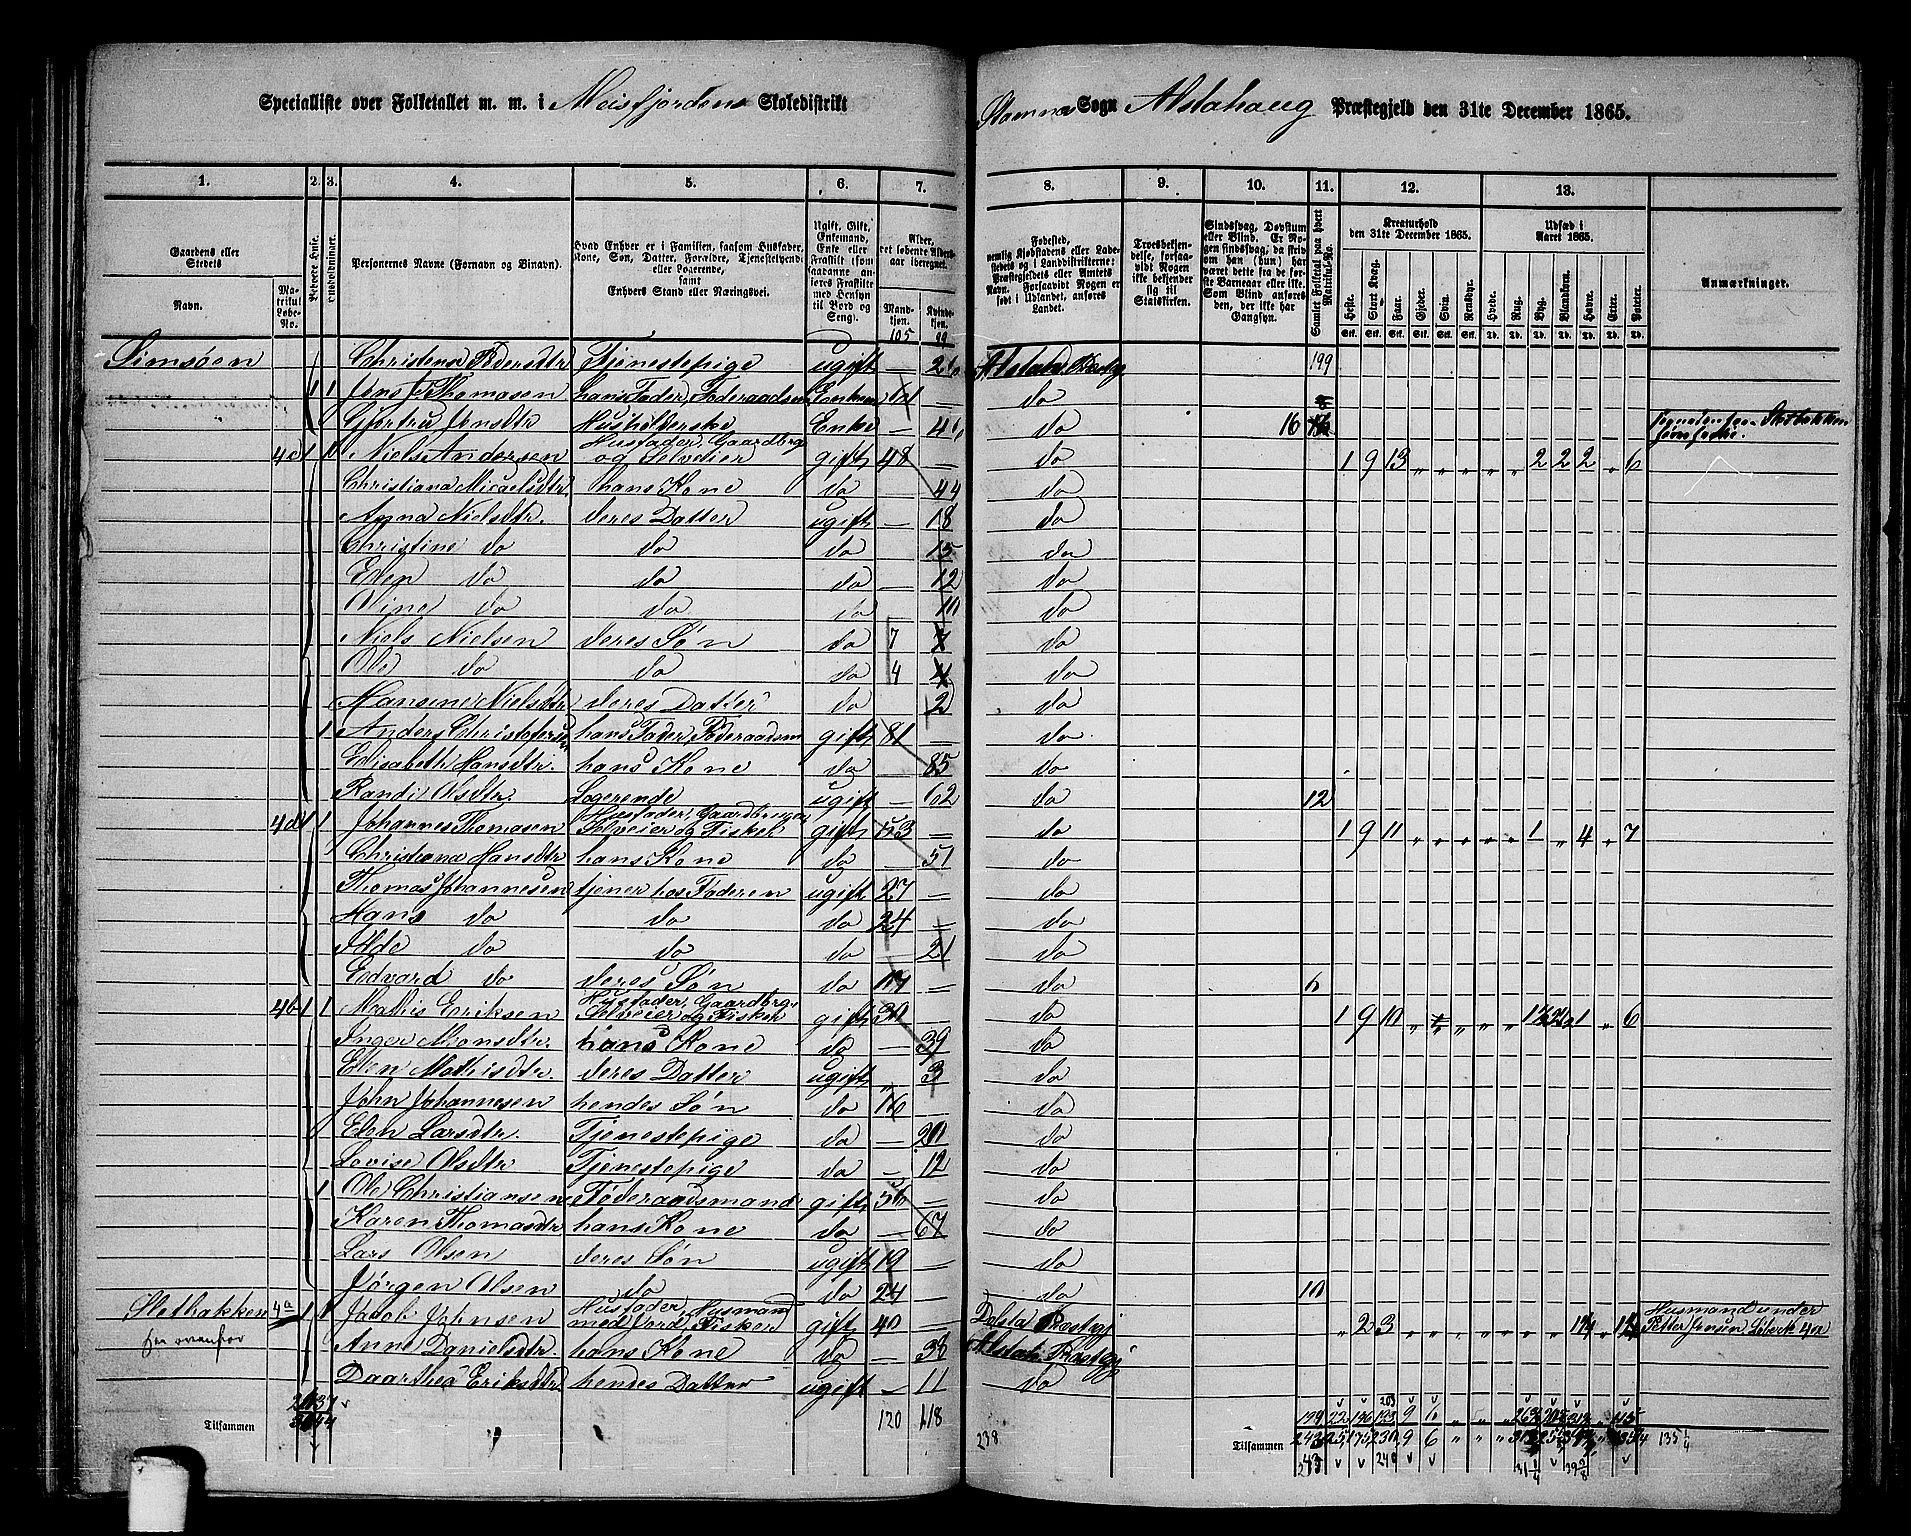 Specialliste over Folketallet m. m. i Meisfjordens Skoledistrikt
Stamnæs Sogn Alstahaug Præstegjeld den 31te December 1865.
1. 2. 3. 4. 5. 6. 7. 8. 9. 10. 11. 12. 13.
Gaardens eller Stedets
Navn.
Matrikul Løbe-No.
Beboede Huse.
Husholdninger.
Personernes Navne (Fornavn og Binavn).
Hvad Enhver er i Familien, saasom Husfader, Kone, Søn, Datter, Forældre, Tjenestetyende eller Logerende, samt Enhvers Stand eller Næringsvei.
Ugift, Gift, Enkemand, Enke eller Fraskilt
Alder, det løbende Aldersaar iberegnet.
Mandkjøn.
Kvindekjøn.
Fødested,
Troesbekjendelse, forsaavidt Nogen ikke bekjender sig til Statskirken.
Sindssvag, Døvstum eller Blind.
Samlet Folketal paa hvert Matrikul-No.
Kreaturhold den 31te December 1865.
Udsæd i Aaret 1865.
Heste. Stort Kvæg. Faar. Gjeder. Sviin. Rensdyr. Hvede. Rug. Byg. Blandkorn. Havre. Erter. Poteter.
Anmærkninger.
105 99
Simsøen Christena Pedersdtr Tjenestepige ugift — 26 Alstah. Præstgj 199
1 1 Jens Thomasen hans Fader, Føderaadsm Enkem 61 — do
Gjertru Jensdtr Husholderske Enke — 46 do 16
4c 1 1 Niels Andersen Husfader, Gaardbrg og Selveier gift 48 — do 1 9 13 " " " " " 2 2 2 " 6
Christiana Micaelsdtr. hans Kone do — 44 do
Anna Nielsdtr. deres Datter ugift — 18 do
Christine do do do — 15 do
Elen do do do — 12 do
Oline do do do — 10 do
Niels Nielsen deres Søn do 7 do
Ole do do do 4 do
Hansine Nielsdtr deres Datter do 2 do
1 Anders Christofersen hans Fader, Føderaadsm gift 81 — do
Elisabeth Hansdtr. hans Kone do — 85 do
Randi Olsdtr. Logerende ugift — 62 do 12
4d 1 1 Johannes Thomasen Husfader, Gaardbruger Selveier og Fisker gift 53 — do 1 9 11 " " " " " 1 " 4 " 7
Christiana Hansdtr hans Kone do — 51 do
Thomas Johannesen tjener hos Faderen ugift 27 — do
Hans do do do 24 — do
do do do — 21 do
Edvard do deres Søn do 14 — do 6
4b 1 1 Mathis Eriksen Husfader, Gaardbrg. Selveier og Fisker gift 30 — do 1 9 10 " " " " " 1 " 6
Inger Monsdtr. hans Kone do — 39 do
Elen Mathisdtr. deres Datter ugift " 3 do
John Johannesen hendes Søn do 16 — do
Elen Larsdtr. Tjenestepige do — 20 do
Lovise Olsdtr Tjenestepige do — 12 do
1 Ole Christiansen Føderaadsmand gift 56 — do
Karen Thomasdtr hans Kone do — 67 do
Lars Olsen deres Søn ugift 19 do
Jørgen Olsen do do 24 do 10
Sletbakken 4a 1 1 Jacob Johnsen Husfader, Husmand med Jord, Fisker gift 40 — Præstgj " 2 3 " " Husmand under Petter Jensen Löbe No 4a
Anne Danielsdtr. hans Kone do — 38 Alstah. Præstgj
Daarthea Eriksdtr hendes Datter ugift — 11 do
Tilsammen 120 118
238 Tilsammen 243 25 175 9 6